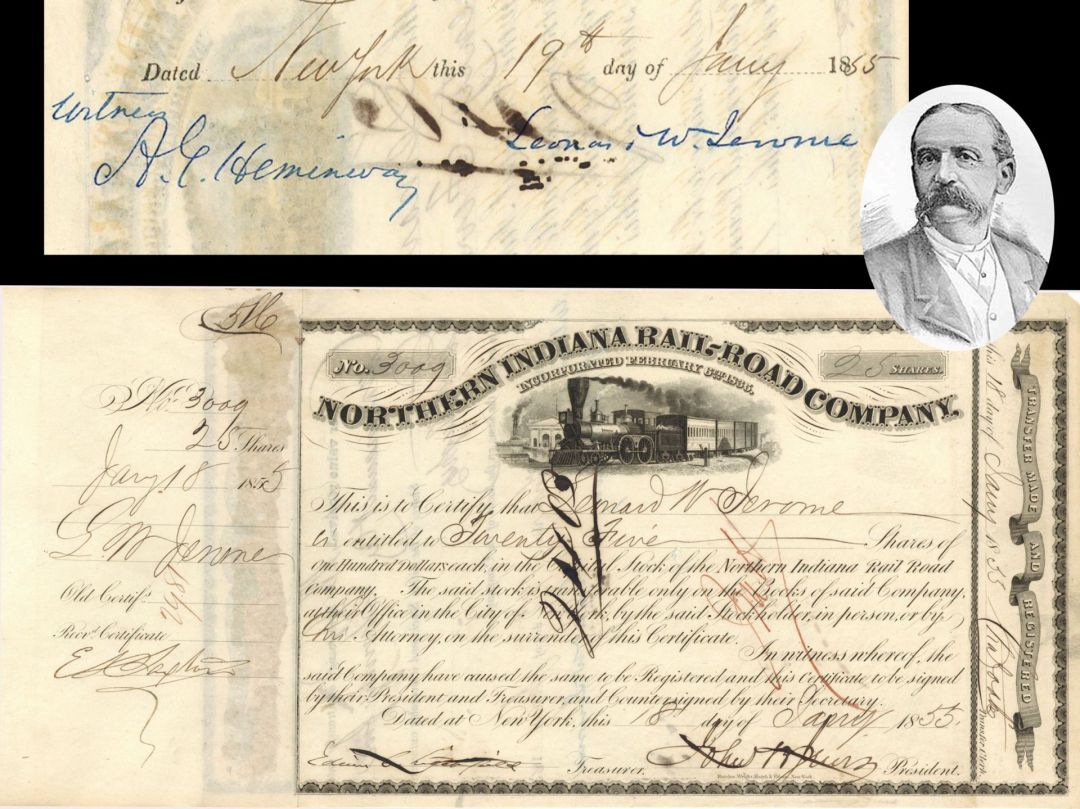 Dated New York this 19th day of Jany 1855
Witness
A. C. Heminway
Leonard W. Jerome
No. 3009
25 Shares
Jany 18 1855
L W Jerome
Old Certifs.
2981
Recd. Certificate
No. 3009
25 SHARES.
NORTHERN INDIANA RAIL-ROAD COMPANY.
INCORPORATED FEBRUARY 8TH 1835.
This is to Certify, that Leonard W Jerome
is entitled to Twenty Five Shares of
One Hundred Dollars each, in the Capital Stock of the Northern Indiana Rail Road
company. The said stock is transferable only on the Books of said Company,
at their Office in the City of New York, by the said Stockholder, in person, or by
his Attorney, on the surrender of this Certificate.
In witness whereof, the
said Company have caused the same to be Registered and this Certificate to be signed
by their President and Treasurer, and Countersigned by their Secretary.
Dated at New York, this 18th day of Jany 1855.
Treasurer.
President.
this 18 day of Jany 1855
TRANSFER MADE AND REGISTERED